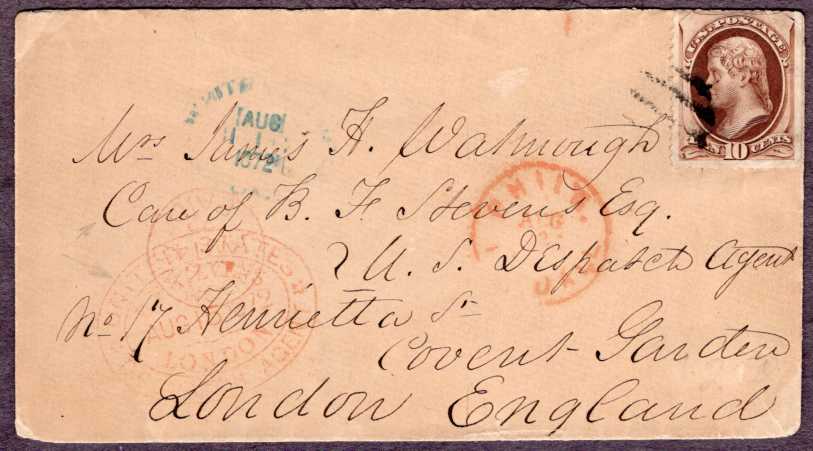 U.S. POSTAGE
10 CENTS
AUG
1872
PHILA.
AUG
Mrs James H. Watmough
Care of B. F. Stevens Esq.
U. S. Despatch Agent
No 17 Henrietta St
Covent Garden
London England
UNITED STATES
AUG
LONDON